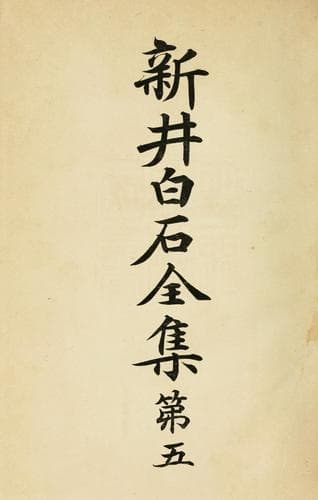 新井白石全集第五